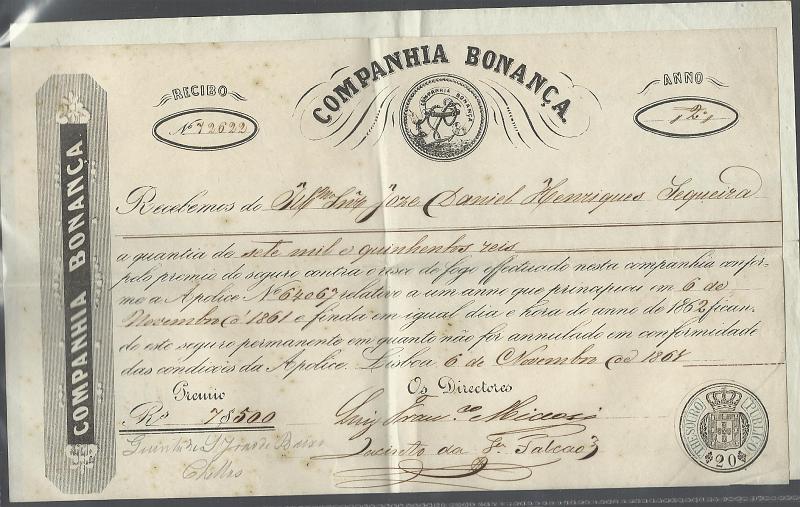 COMPANHIA BONANÇA
RECIBO
No 72622
COMPANHIA BONANÇA.
COMPANHIA BONANÇA
ANNO
Recebemos do Illmo Snr Joze Daniel Henriques Sequeira
a quantia de sete mil e quinhentos reis
pelo premio do seguro contra o risco do fogo effectuado nesta companhia confor-
me a Apolice No 64067 relativo a um anno que principiou em 6 de
Novembro de 1861 e finda em igual dia e hora do anno de 1862 fican-
do este seguro permanente em quanto não for annulado em conformidade
das condições da Apolice. Lisboa 6 de Novembro de 1861
Premio
Os Directores
Rs 7$500
Luiz Franco
Quinta de S. João de Baixo
Jacinto da Sa Falcão
Chellas
THESOURO PUBLICO
20